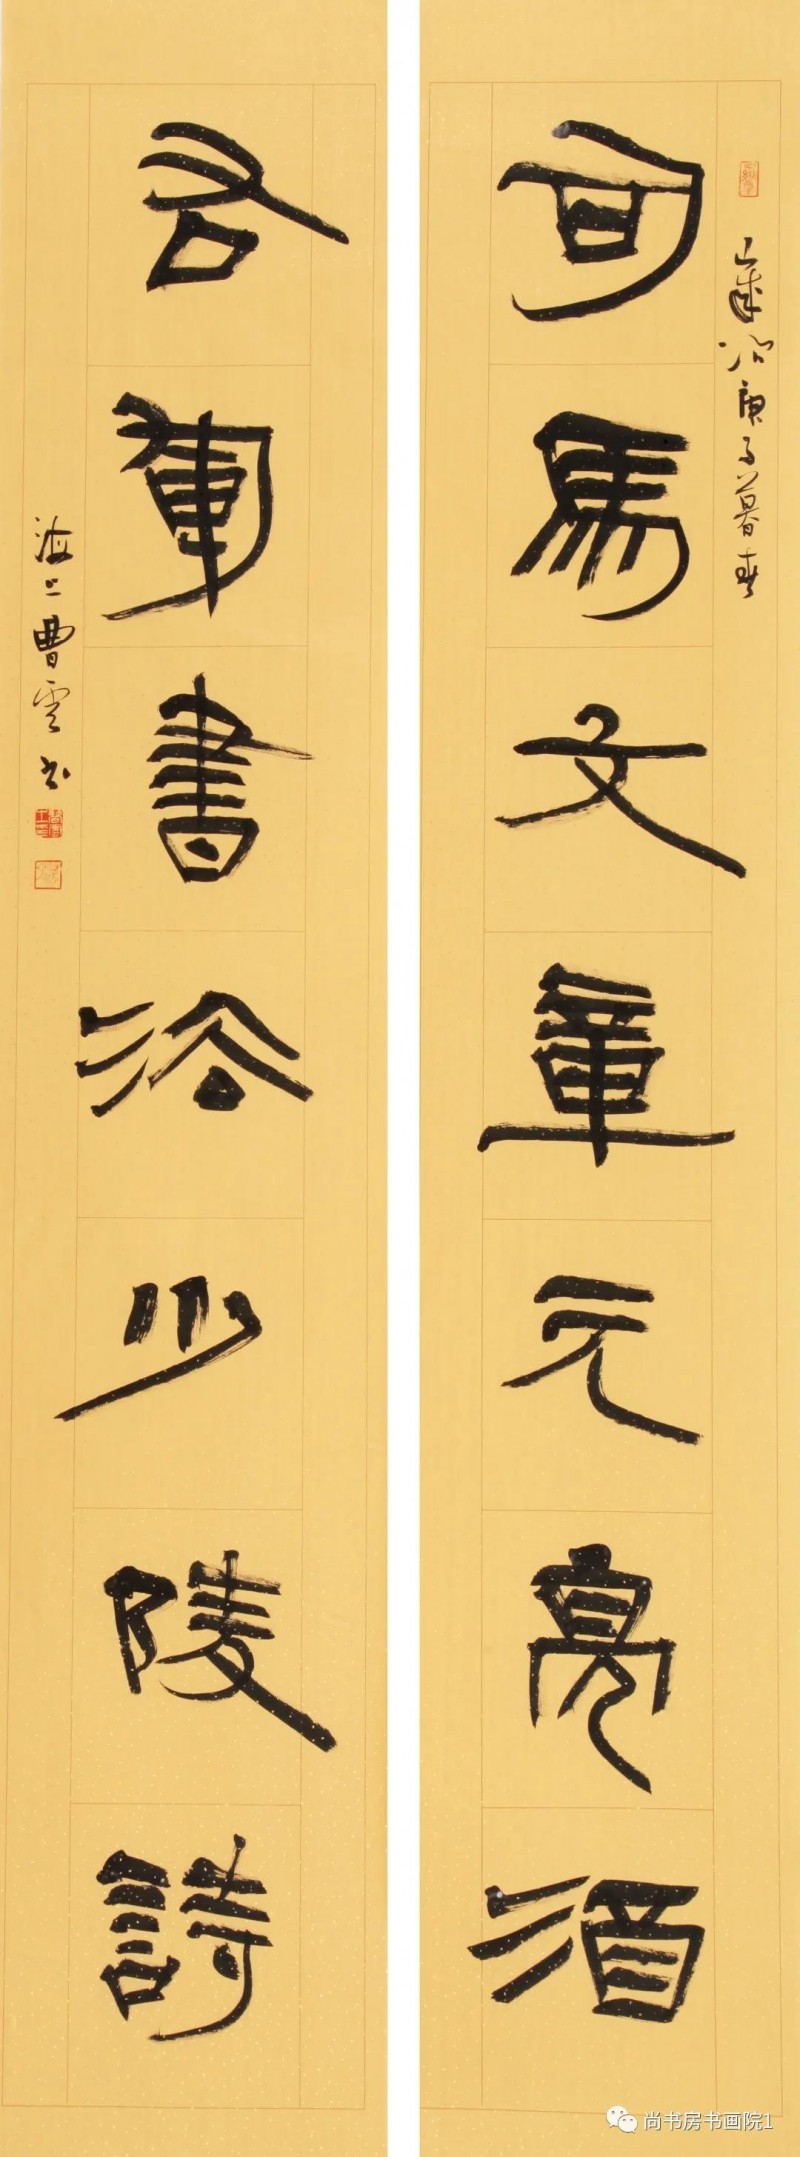 司馬文章元亮酒
歲次庚子暮春
右軍書法少陵詩
海上曹雲书
尚书房书画院1